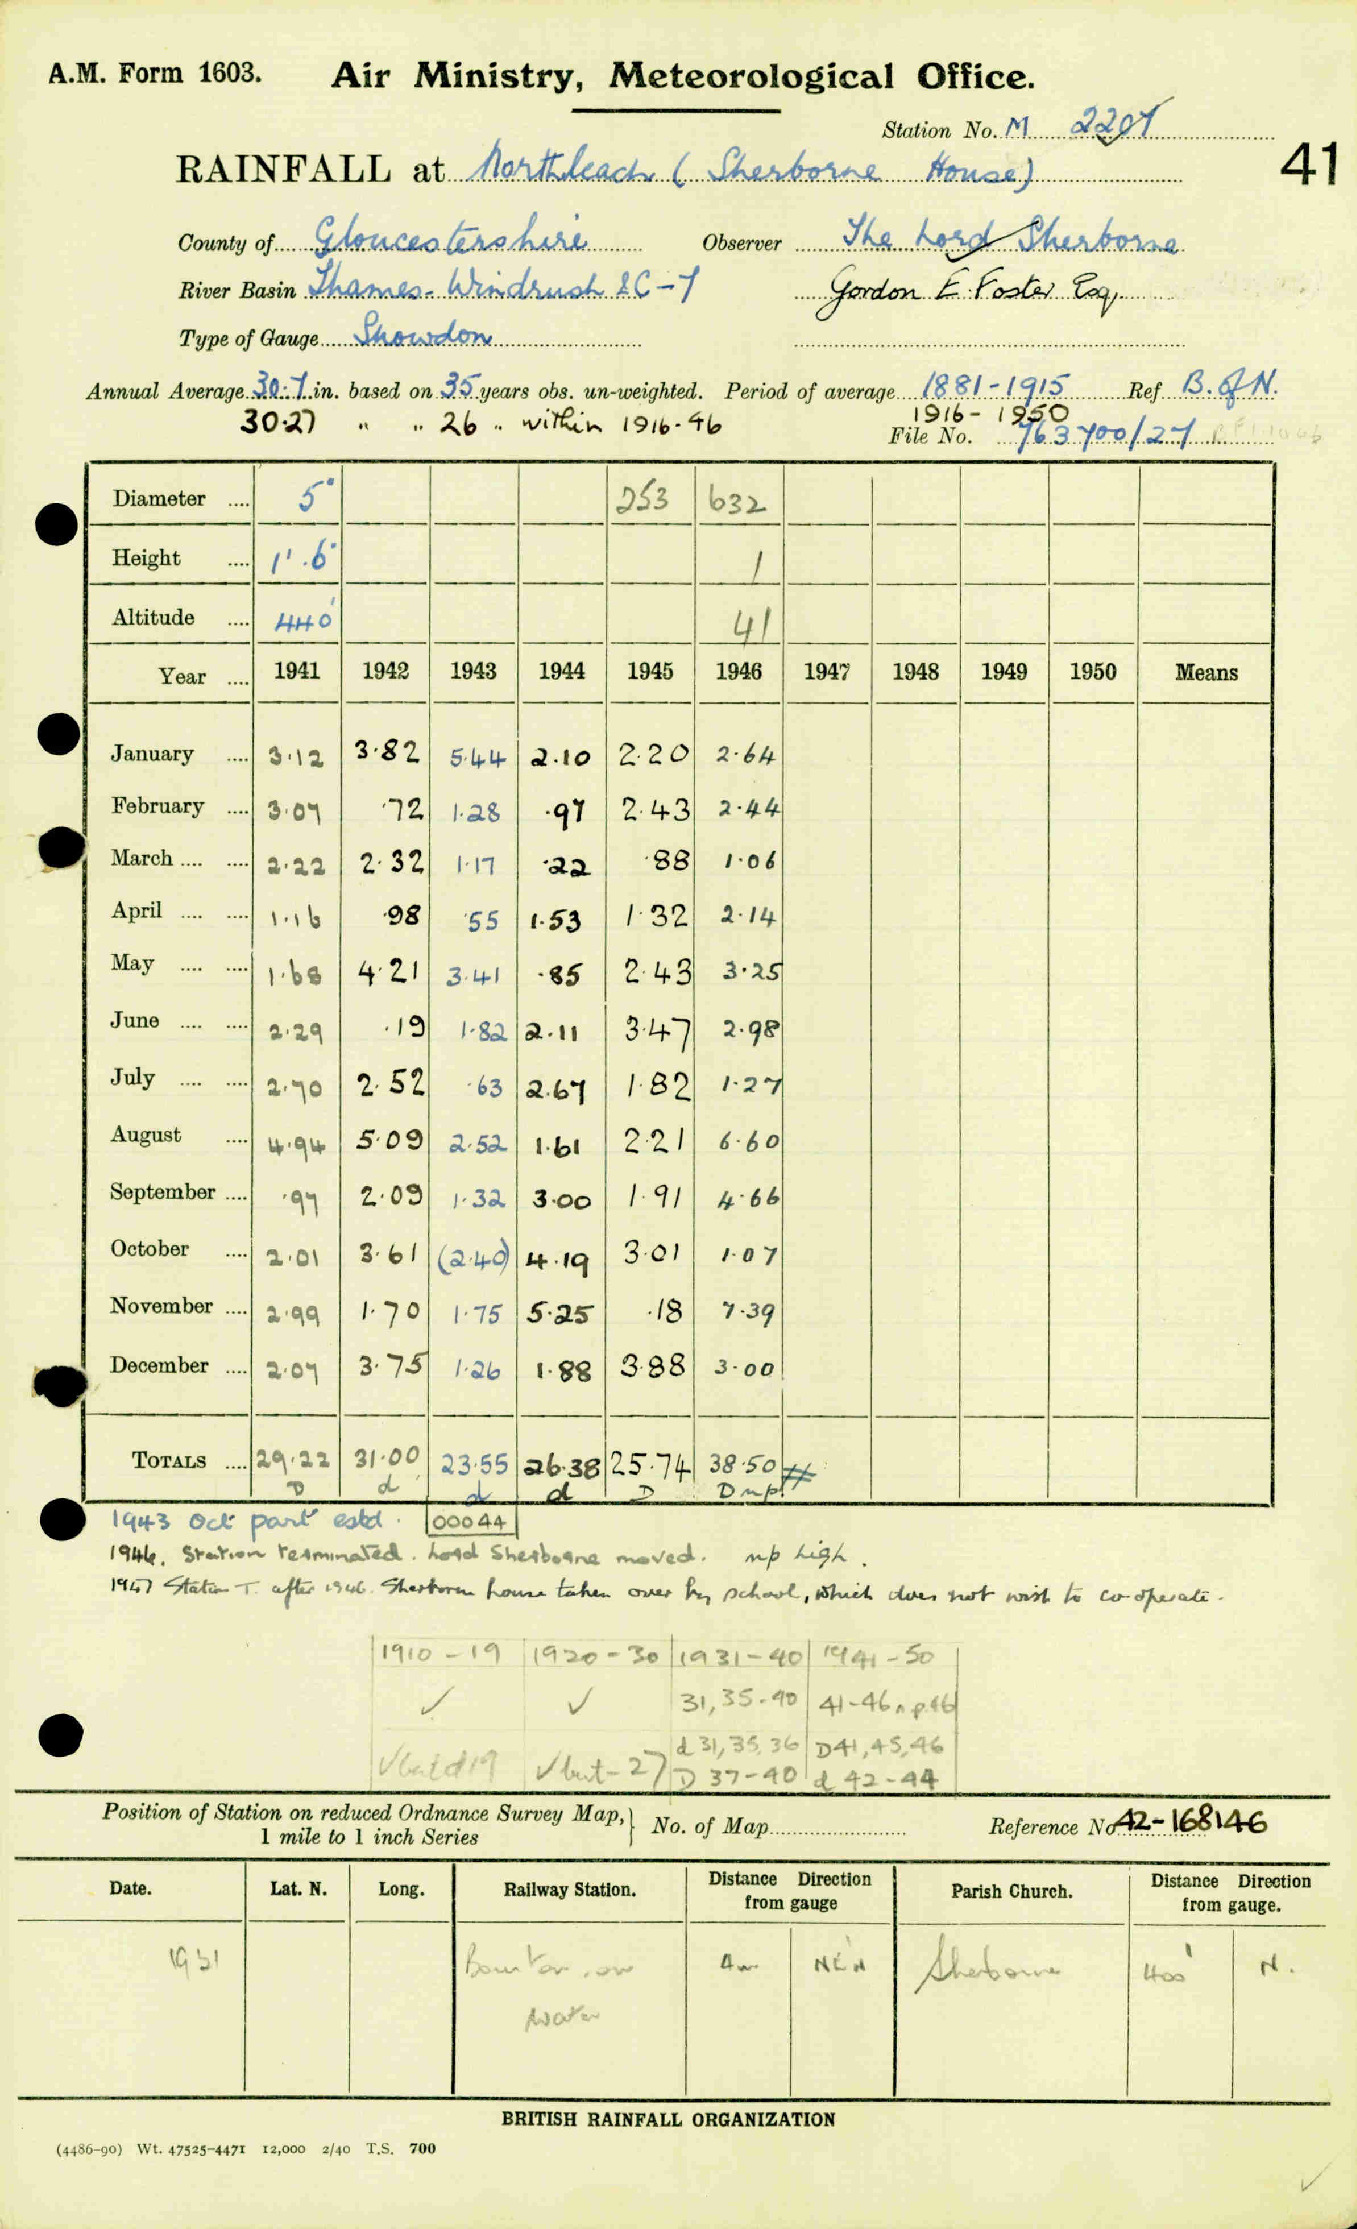 A.M. Form 1603. Air Ministry, Meteorological Office.
Station No. M 2207
41
RAINFALL at Northleach ( Sherborne House)
County of Gloucestershire Observer The Lord Sherborne
River Basin Thames - Windrush 2C-7 Gordon E. Foster Esq,
Type of Gauge Snowdon
Annual Average 30.7 in. based on 35 years obs. un-weighted. Period of average 1881-1915 Ref B. of N.
30.27 " " 26 " within 1916-46 1916-1950
File No. 763700/27
Diameter .... 5" 253 632
Height .... 1'.6" 1
Altitude .... 440' 41
Year .... 1941 1942 1943 1944 1945 1946 1947 1948 1949 1950 Means
January .... 3.12 3.82 5.44 2.10 2.20 2.64
February .... 3.07 .72 1.28 .97 2.43 2.44
March .... .... 2.22 2.32 1.17 .22 .88 1.06
April .... .... 1.16 .98 .55 1.53 1.32 2.14
May .... .... 1.68 4.21 3.41 .85 2.43 3.25
June .... .... 2.29 .19 1.82 2.11 3.47 2.98
July .... .... 2.70 2.52 .63 2.67 1.82 1.27
August .... 4.94 5.09 2.52 1.61 2.21 6.60
September .... .97 2.09 1.32 3.00 1.91 4.66
October .... 2.01 3.61 (2.40) 4.19 3.01 1.07
November .... 2.99 1.70 1.75 5.25 .18 7.39
December .... 2.07 3.75 1.26 1.88 3.88 3.00
TOTALS .... 29.22 31.00 23.55 26.38 25.74 38.50 #
D d d d D D np.
1943 Oct part estd. 00044
1946. Station terminated. Lord Sherborne moved. np high.
1947 Station T. after 1946. Sherborne house taken over by school, which does not wish to co-operate.
1910-19 1920-30 1931-40 1941-50
✓ ✓ 31, 35-40 41-46 n.p.46
d 31, 35, 36 D 41, 45, 46
✓ but d 19 ✓ but - 27 D 37-40 d 42-44
Position of Station on reduced Ordnance Survey Map, 1 mile to 1 inch Series } No. of Map Reference No. 42-168146
Date. Lat. N. Long. Railway Station. Distance Direction from gauge Parish Church. Distance Direction from gauge.
1931 Bourton on Water 4m NE'N Sherborne 400' N.
BRITISH RAINFALL ORGANIZATION
(4486-90) Wt. 47525-4471 12,000 2/40 T.S. 700